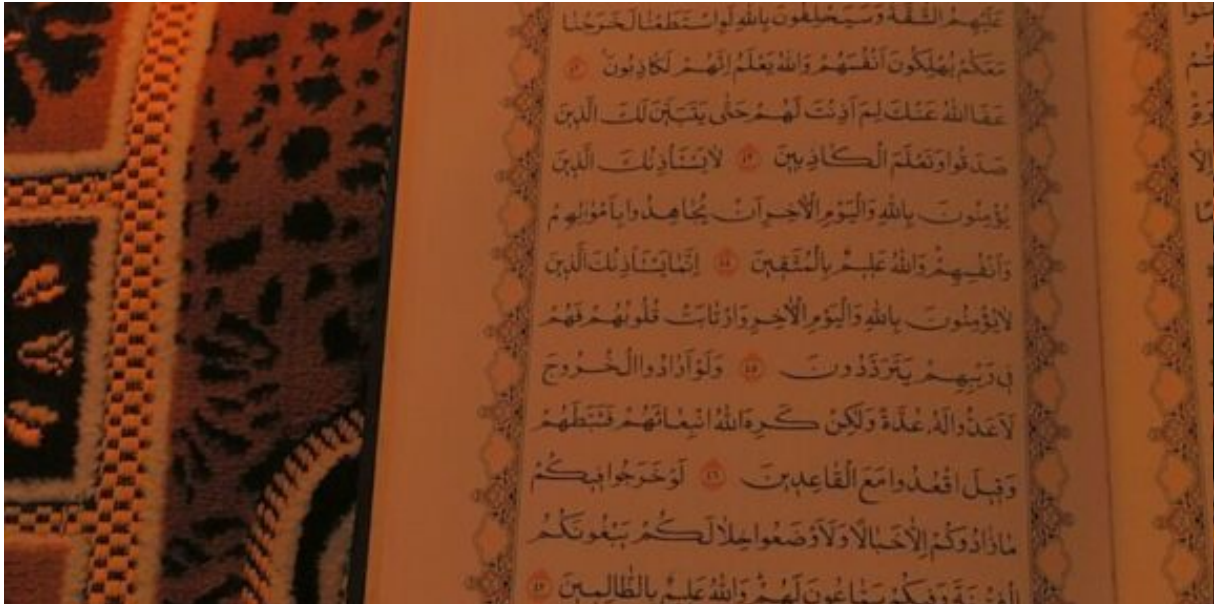 عَلَيْهِمُ الشُّقَّةُ وَسَيَحْلِفُونَ بِاللّٰهِ لَوِ اسْتَطَعْنَا لَخَرَجْنَا
مَعَكُمْ يُهْلِكُونَ اَنْفُسَهُمْ وَاللّٰهُ يَعْلَمُ اِنَّهُمْ لَكَاذِبُونَ ٤٢
عَفَا اللّٰهُ عَنْكَ لِمَ اَذِنْتَ لَهُمْ حَتّٰى يَتَبَيَّنَ لَكَ الَّذِينَ
صَدَقُوا وَتَعْلَمَ الْكَاذِبِينَ ٤٣ لَا يَسْتَأْذِنُكَ الَّذِينَ
يُؤْمِنُونَ بِاللّٰهِ وَالْيَوْمِ الْاٰخِرِ اَنْ يُجَاهِدُوا بِاَمْوَالِهِمْ
وَاَنْفُسِهِمْ وَاللّٰهُ عَلِيمٌ بِالْمُتَّقِينَ ٤٤ اِنَّمَا يَسْتَأْذِنُكَ الَّذِينَ
لَا يُؤْمِنُونَ بِاللّٰهِ وَالْيَوْمِ الْاٰخِرِ وَارْتَابَتْ قُلُوبُهُمْ فَهُمْ
فِى رَيْبِهِمْ يَتَرَدَّدُونَ ٤٥ وَلَوْ اَرَادُوا الْخُرُوجَ
لَاَعَدُّوا لَهُ عُدَّةً وَلٰكِنْ كَرِهَ اللّٰهُ انْبِعَاثَهُمْ فَثَبَّطَهُمْ
وَقِيلَ اقْعُدُوا مَعَ الْقَاعِدِينَ ٤٦ لَوْ خَرَجُوا فِيكُمْ
مَا زَادُوكُمْ اِلَّا خَبَالًا وَلَاَوْضَعُوا خِلَالَكُمْ يَبْغُونَكُمُ
الْفِتْنَةَ وَفِيكُمْ سَمَّاعُونَ لَهُمْ وَاللّٰهُ عَلِيمٌ بِالظَّالِمِينَ ٤٧